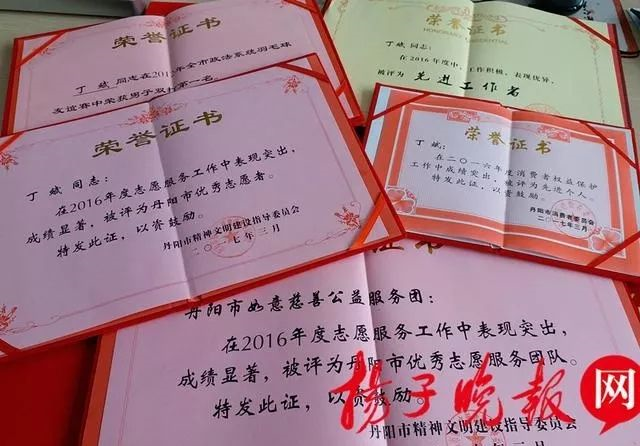 荣誉证书
丁斌 同志在201年全市政法系统羽毛球
友谊赛中荣获男子双打第一名。
荣誉证书
HONORARY CREDENTIAL
丁斌 同志:
在2016年度中,工作积极,表现优异,
被评为 先进工作者
荣誉证书
丁斌 同志:
在2016年度志愿服务工作中表现突出,
成绩显著,被评为丹阳市优秀志愿者。
特发此证,以资鼓励。
丹阳市精神文明建设指导委员会
二〇一七年三月
荣誉证书
丁斌:
在二〇一六年度消费者权益保护
工作中成绩突出,被评为先进个人。
特发此证,以资鼓励。
丹阳市消费者委员会
二〇一七年三月
证书
丹阳市如意慈善公益服务团:
在2016年度志愿服务工作中表现突出,
成绩显著,被评为丹阳市优秀志愿服务团队。
特发此证,以资鼓励。
丹阳市精神文明建设指导委员会
扬子晚报网